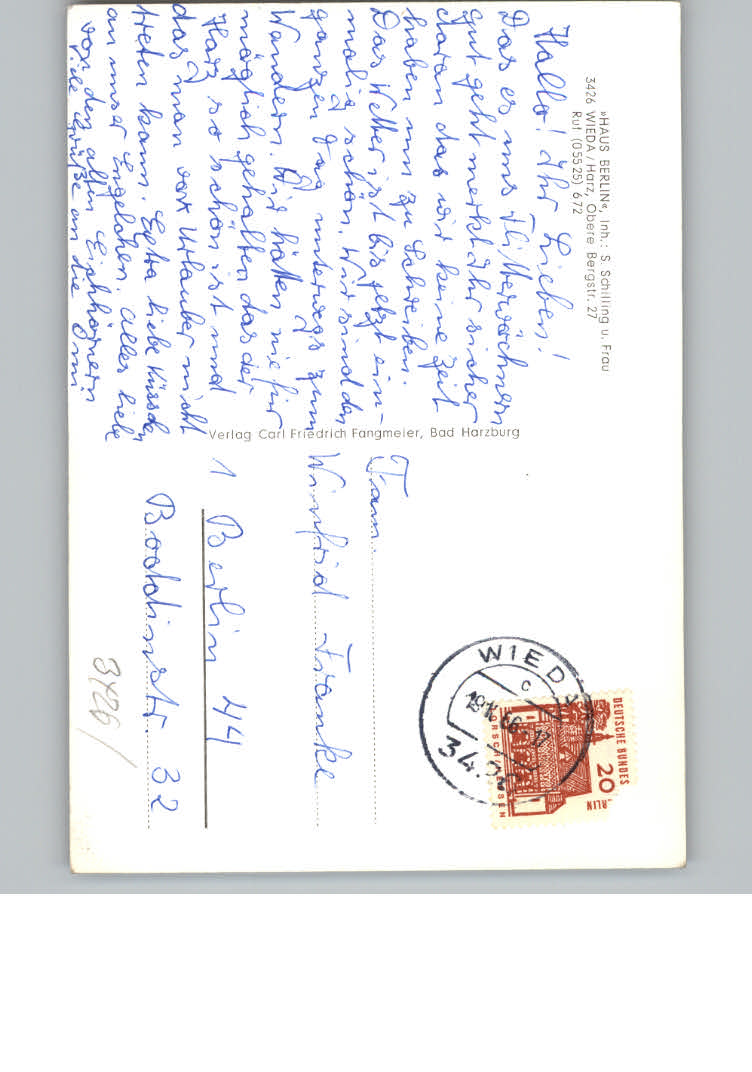 »HAUS BERLIN«, Inh.: S. Schilling u. Frau
3426 WIEDA/Harz, Obere Bergstr. 27
Ruf (05525) 672
Hallo! Ihr Lieben!
Das es uns Flitterwöchnern
gut geht merkt Ihr sicher
daran das wir keine Zeit
haben um zu schreiben.
Das Wetter ist bis jetzt ein-
malig schön. Wir sind den
ganzen Tag unterwegs zum
Wandern. Wir hätten nie für
möglich gehalten das der
Harz so schön ist und
das man vor Urlauber nicht
treten kann. Extra liebe Küsschen
an unser Engelchen. Alles liebe
von den alten Eichhörnern
Viele Grüße an die Omi
Verlag Carl Friedrich Fangmeier, Bad Harzburg
Fam.
Winfrid Franke
1 Berlin 44
Boddinstr. 32
3426/
WIEDA
c
DEUTSCHE BUNDES
20
RLIN
LORSCH/HESSEN